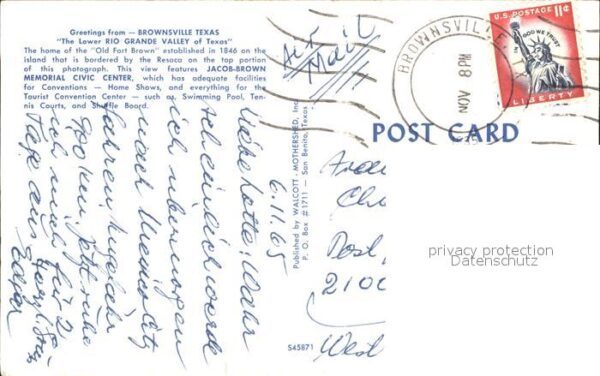 Greetings from — BROWNSVILLE TEXAS
"The Lower RIO GRANDE VALLEY of Texas"
The home of the "Old Fort Brown" established in 1846 on the
island that is bordered by the Resaca on the top portion
of this photograph. This view features JACOB-BROWN
MEMORIAL CIVIC CENTER, which has adequate facilities
for Conventions — Home Shows, and everything for the
Tourist Convention Center — such as Swimming Pool, Ten-
nis Courts, and Shuffle Board.
Air
Mail
BROWNSVILLE
NOV 8PM
U.S. POSTAGE 11¢
IN GOD WE TRUST
LIBERTY
POST CARD
Published by WALCOTT - MOTHERSHED, Inc.
P. O. Box #1711 — San Benito, Texas
S45871
6.11.65
Liebe Lotte! Wahr
scheinlich werde
ich übermorgen
nach Mexico City
fahren
ich mich für 2
Tage aus
Post
2100
West
privacy protection
Datenschutz